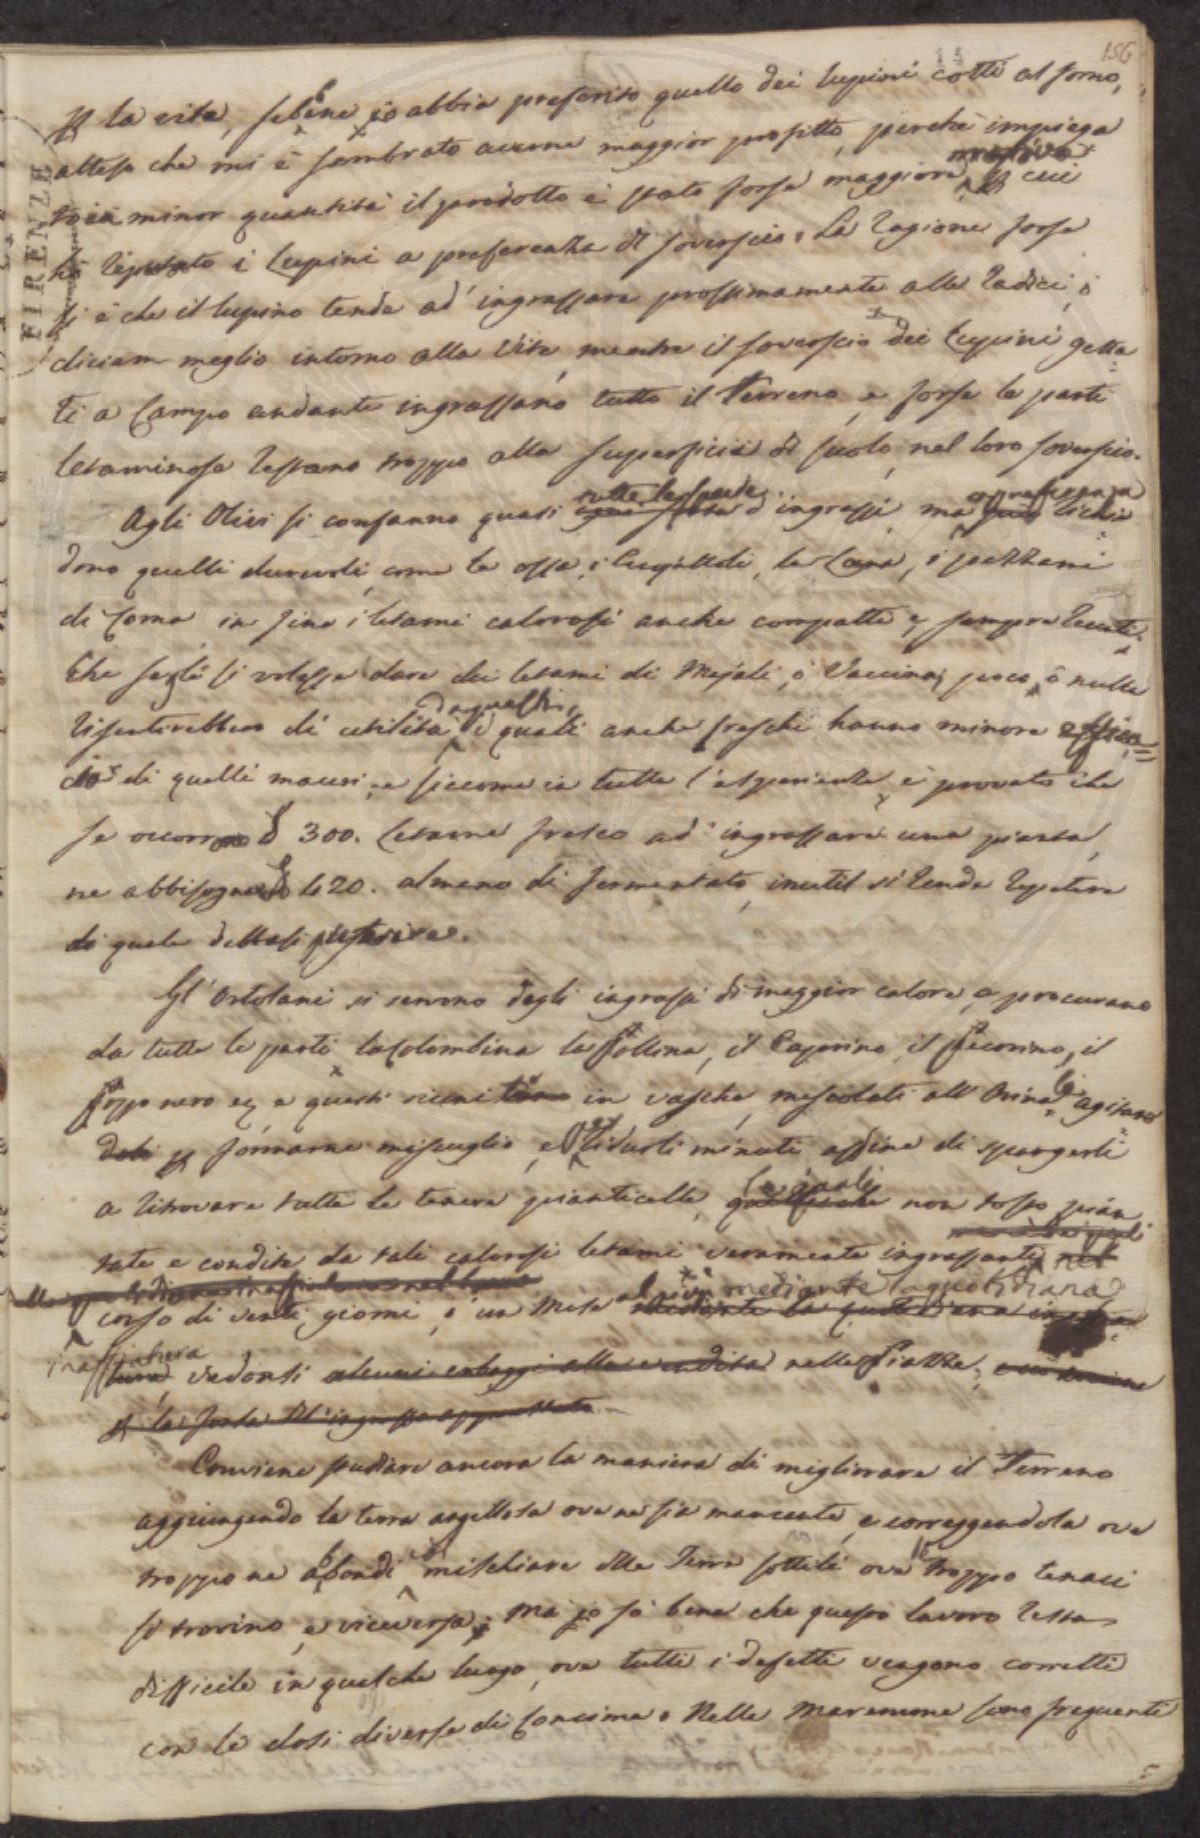 156
la vite, sebbene io abbia preferito quello dei lupini cotti al forno,
atteso che mi è sembrato averne maggior profitto, perchè impiega
minor quantità il prodotto è stato forse maggiore, cui
i Lupini a preferenza di soverscio. La ragione forse
si è che il lupino tende ad ingrassare prossimamente alle radici, ò
diciam meglio intorno alla Vite, mentre il soverscio dei Lupini getta
ti a Campo andante ingrassano tutto il Terreno, e forse le parti
letaminose restano troppo alla superficie di suolo, nel loro soverscio.
tutte le specie
Agli Olivi si confanno quasi d'ingrassi, ma
dono quelli durevoli, come le ossa, i , la Lana, i pezzami
di Corna, in fine i letami calorosi anche compatti e sempre
Che se gli si volesse dare dei letami di Majali, ò Vaccina, poco, ò nulla
da questi,
risulterebbero di utilità i quali anche freschi hanno minore
di quelli macuri, e siccome in tutte l'esperienze è provato che
se 300. Letame fresco ad ingrassare una pianta,
ne 420. almeno di fermentato, inutil si rende repetere
di quale
Gl'Ortolani si servono degli ingrassi di maggior calore, e procurano
da tutte le parti la Colombina la Pollina, il Caprino, il Pecorino, il
Pozzo nero e questi in vasche, mescolati all'Orina agitano
formarne miscuglio, e minuti affine di spargerli
le quali
a ritrovare tutte le tenere pianticelle, non tosto pian
tate e condite da tali calorosi letami veramente ingrassanti, nel
mediante la quotidiana
corso di venti giorni, ò un Mese
inaffiatura
vedonsi alcuni erbaggi alla vendita nelle Piazze,
la forza dell'ingrasso
Conviene studiare ancora la maniera di migliorare il Terreno
aggiungendo la terra argillosa ove ne sia mancante, e correggendola ove
troppo ne abbondi mischiare Terre sottili ove troppo tenaci
si trovino, e viceversa; Ma io so bene che questo lavoro resta
difficile in qualche luogo, ove tutti i difetti vengono corretti
con le dosi diverse di Concime. Nelle Maremme sono frequenti
FIRENZE